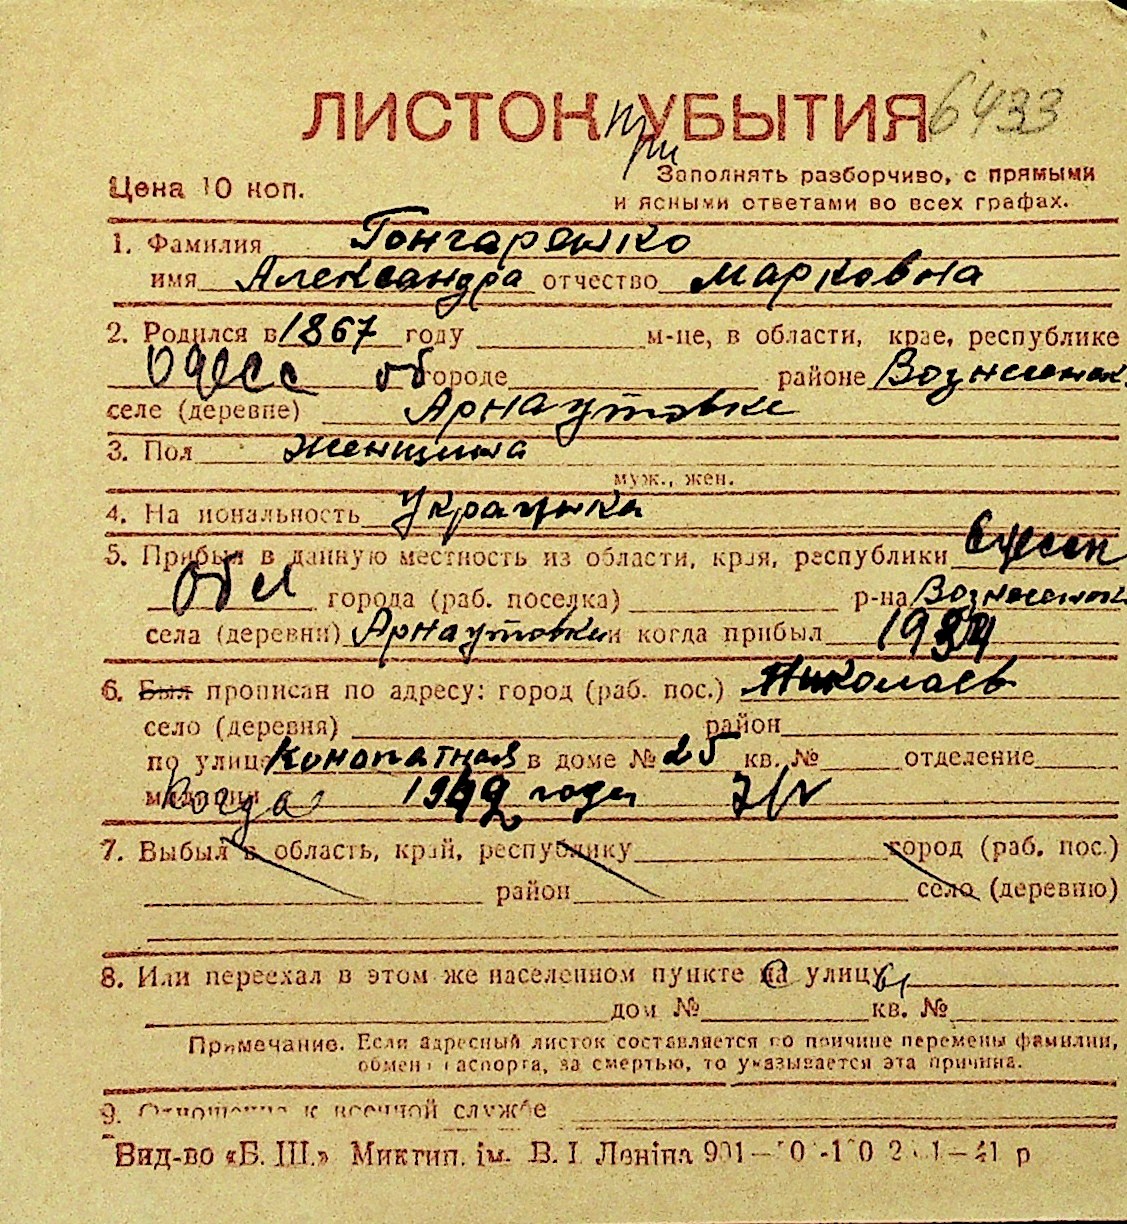 ЛИСТОК при УБЫТИЯ 6433
Цена 10 коп.
Заполнять разборчиво, с прямыми
и ясными ответами во всех графах.
1. Фамилия Гончаренко
имя Александра отчество Марковна
2. Родился в 1867 году м-це, в области, крае, республике
Одесс об городе районе Вознесенск
селе (деревне) Арнаутовке
3. Пол женщина
муж., жен.
4. Национальность Украинка
5. Прибыл в данную местность из области, края, республики Одесск
обл города (раб. поселка) р-на Вознесенск
села (деревни) Арнаутовки и когда прибыл 1934
6. Был прописан по адресу: город (раб. пос.) Николаев
село (деревня) район
по улице Конопатная в доме № 25 кв. № отделение
милиции Когда 1942 года
7. Выбыл в область, край, республику город (раб. пос.)
район село (деревню)
8. Или переехал в этом же населенном пункте на улицу
дом № кв. №
Примечание. Если адресный листок составляется по причине перемены фамилии,
обмена паспорта, за смертью, то указывается эта причина.
9. Отношение к военной службе
Вид-во «Б. Ш.» Миктип. ім. В. І Леніна